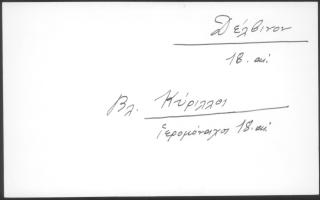 Δέλβινον
18. αἰ.
Βλ. Κύριλλος
ἱερομόναχος 18. αἰ.